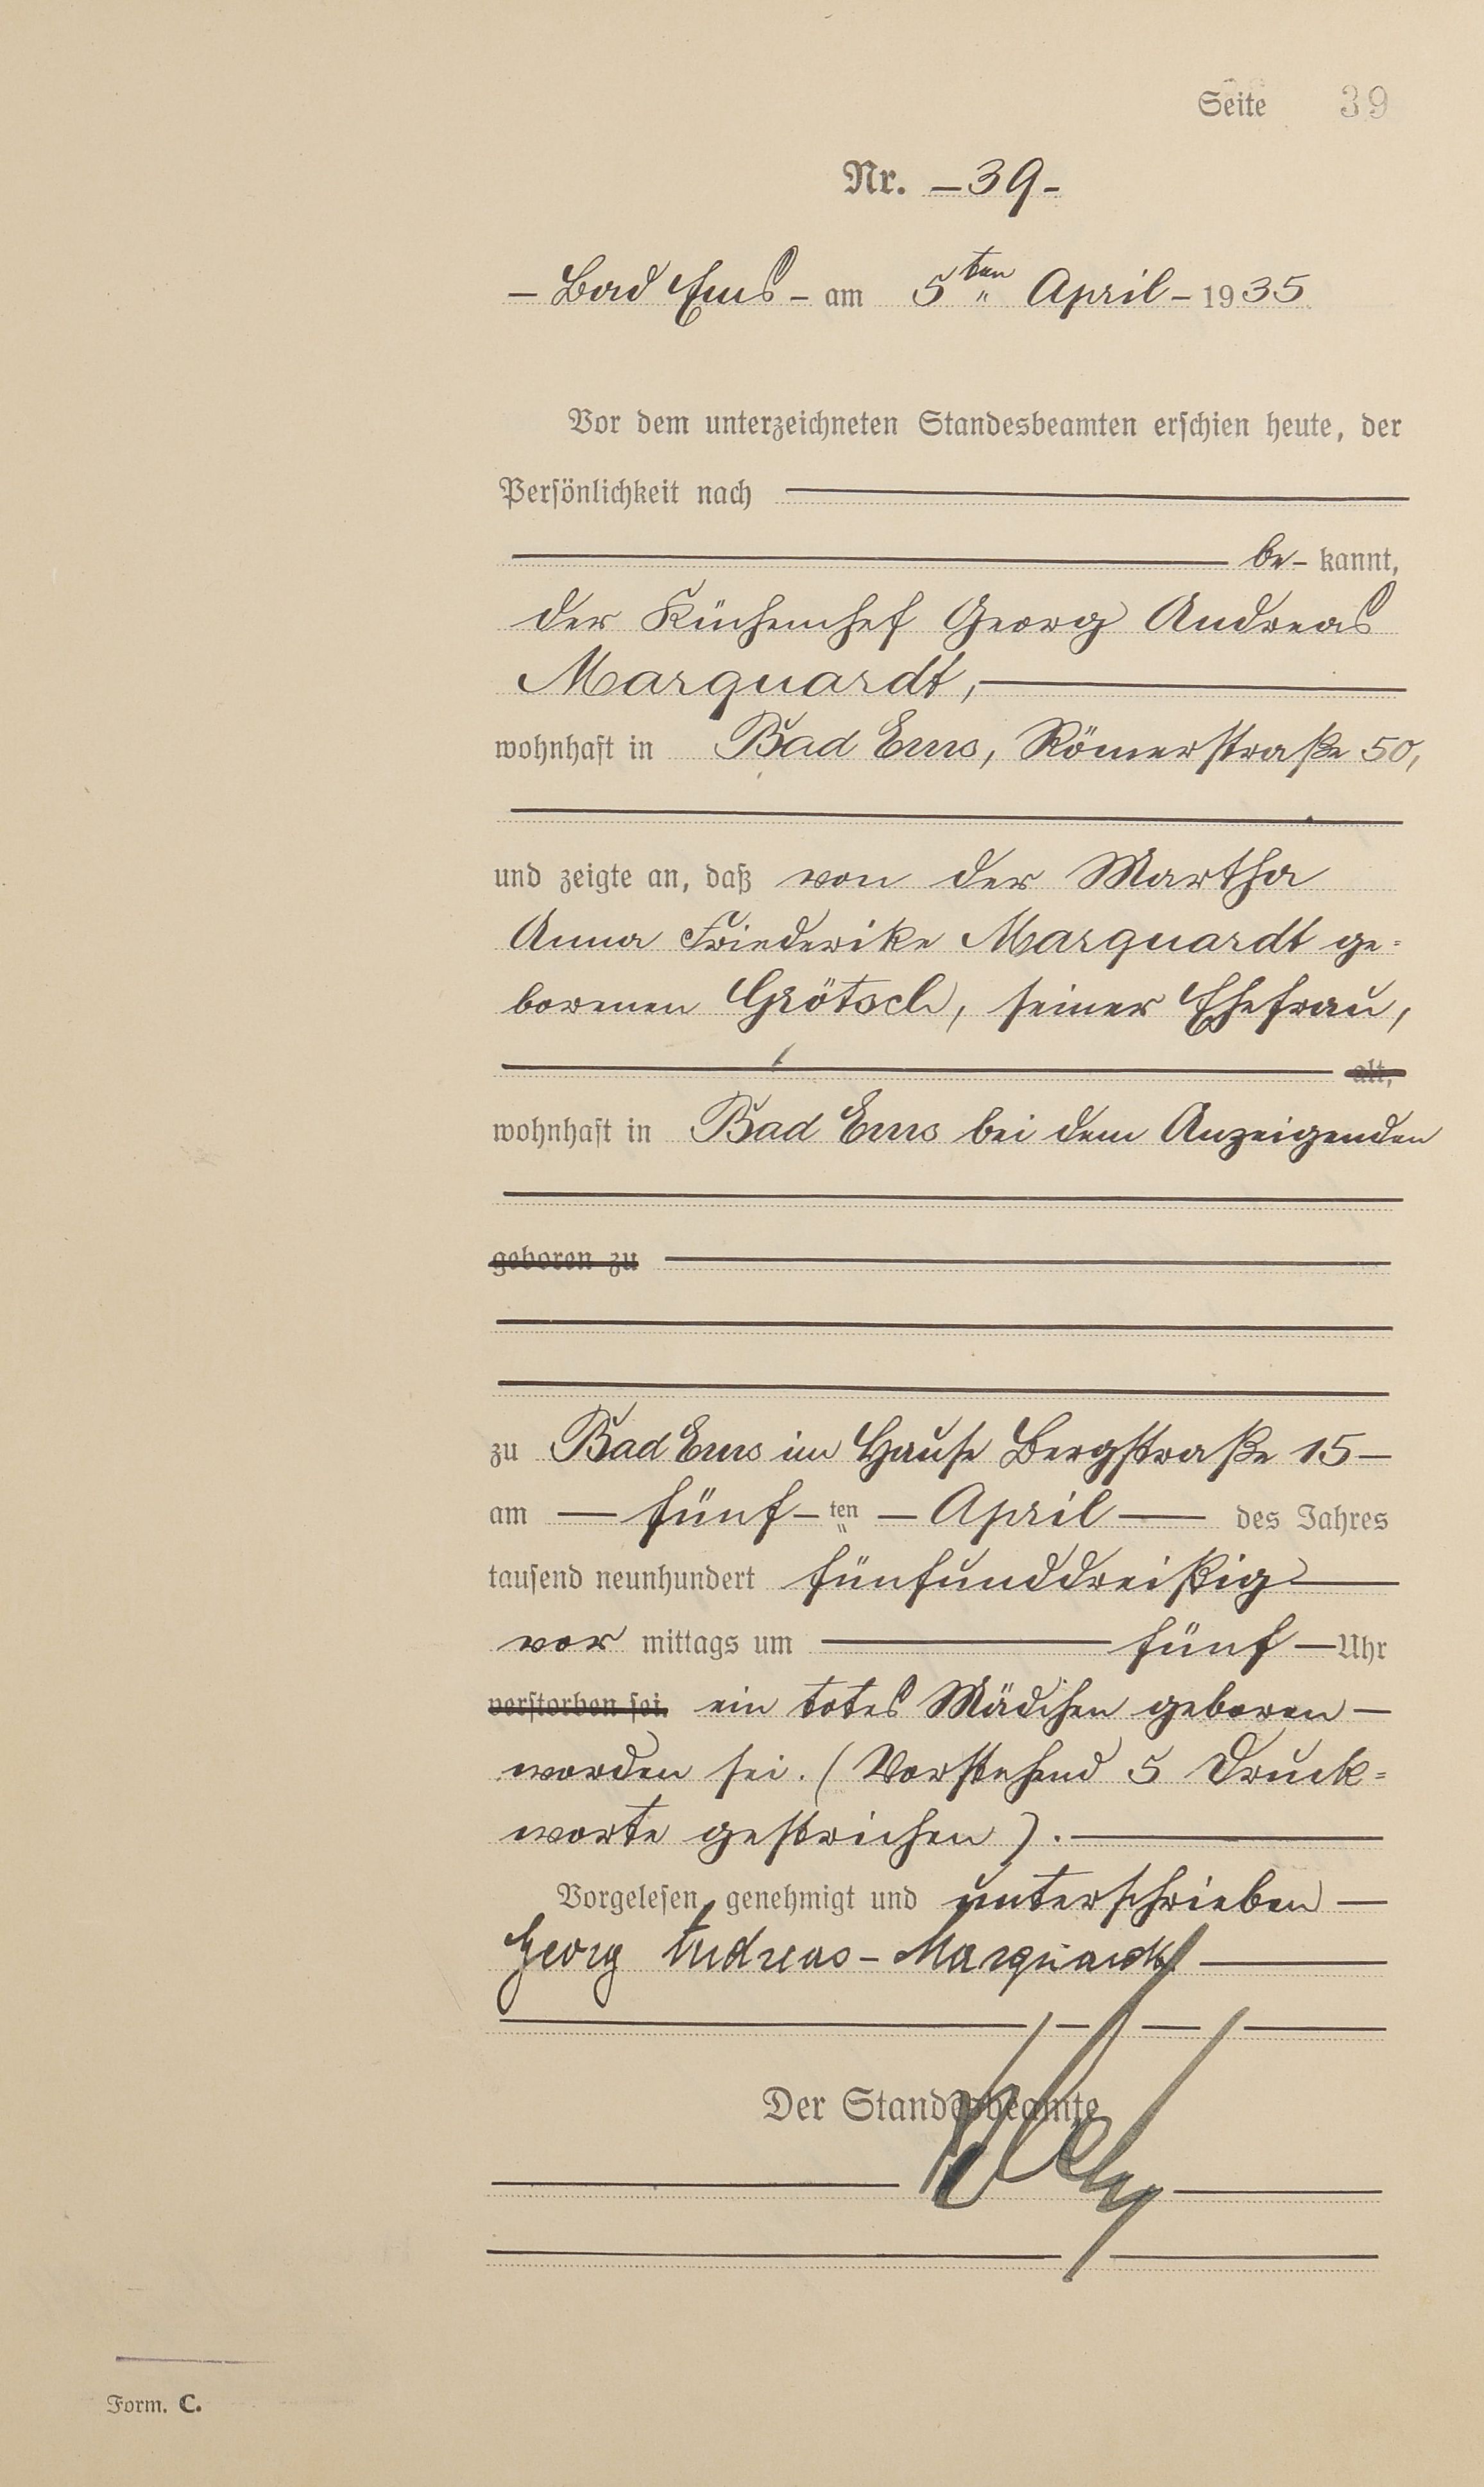 Seite 39
Nr. – 39 –
– Bad Ems – am 5ten April – 1935
Vor dem unterzeichneten Standesbeamten erschien heute, der
Persönlichkeit nach
be – kannt,
der Küchenchef Georg Andreas
Marquardt,
wohnhaft in Bad Ems, Römerstraße 50,
und zeigte an, daß von der Martha
Anna Friederike Marquardt ge=
borenen Grötsch, seiner Ehefrau,
alt,
wohnhaft in Bad Ems bei dem Anzeigenden
geboren zu
zu Bad Ems im Hause Bergstraße 15 –
am – fünf – ten – April – des Jahres
tausend neunhundert fünfunddreißig
vor mittags um fünf – Uhr
verstorben sei. ein totes Mädchen geboren –
worden sei. (Vorstehend 5 Druck=
worte gestrichen).
Vorgelesen, genehmigt und unterschrieben –
Georg Andreas – Marquardt
Der Standesbeamte
Form. C.